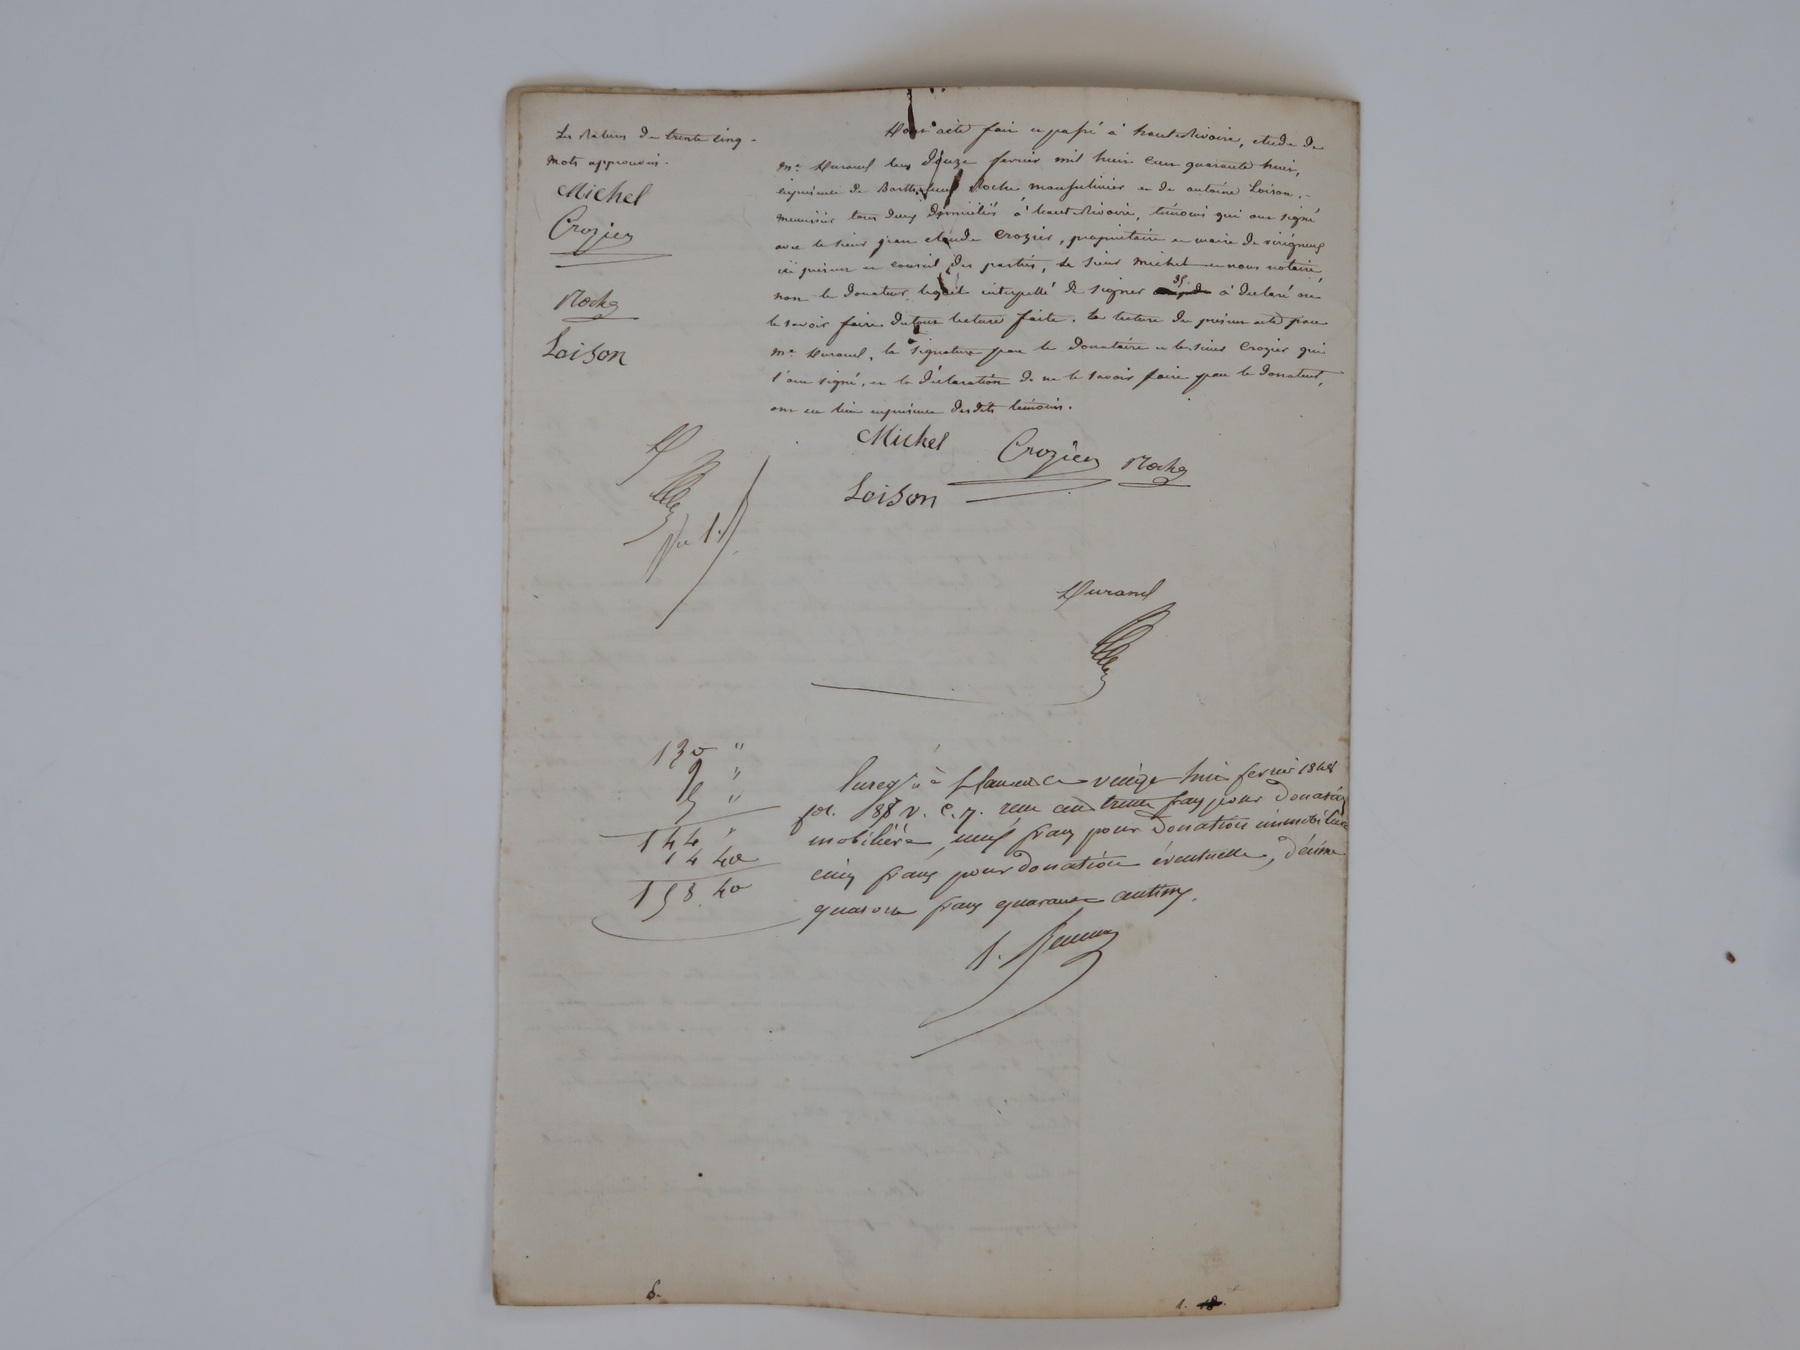 La Rature de trente cinq
mots approuvée.
Michel
Crozier
Roche
Loison
Dont acte fait et passé à haute Rivoire, etude de
Me Durand le douze fevrier mil huit cent quarante huit,
en présence de Barthelemi Roche et de antoine Loison,
tous deux domiciliés à haute Rivoire, témoins qui ont signé
avec le sieur jean claude Crozier, propriétaire et maire de virigneux
ici présent et conseil des parties, le sieur Michel et nous notaire,
non le donateur lequel interpellé de signer à déclaré ne
le savoir faire du tout lecture faite. la lecture du présent acte par
Me Durand, la signature par le donataire et le sieur Crozier qui
l'ont signé, et la déclaration de ne le savoir faire par le donateur,
ont eu lieu en présence desdits témoins.
Michel Crozier Roche
Loison
Durand
130 "
9 "
5 "
144 "
14 40
158.40
Enregtré à vingt huit fevrier 1848
fol. 88 v. c. 7. reçu cent trente francs pour donation
mobilière, neuf francs pour donation immobilière
cinq francs pour donation éventuelle, décime
quatorze francs quarante centimes.
6.
1.